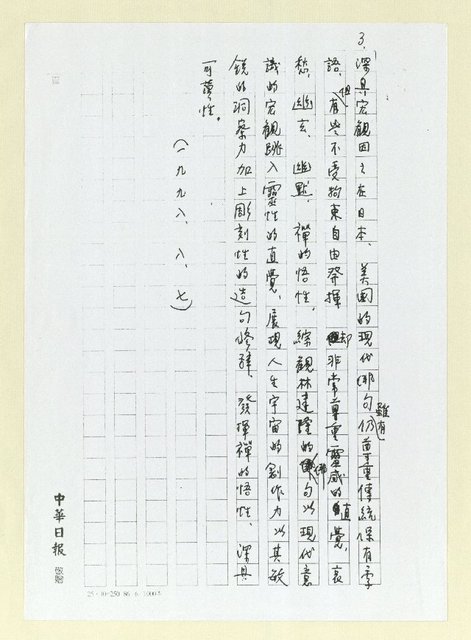 3.
深具宏觀因之在日本、美國的現代俳句仍雖有尊重傳統保有季
語，但有些不受拘束自由發揮，却非常尊重靈感的直覺，哀
愁、幽玄、幽默、禪的悟性，綜觀林建隆的俳句以現代意
識的宏觀跳入靈性的直覺，展現人生宇宙的創作力以其敏
銳的洞察力加上彫刻性的造句修辭，發揮禪的悟性，深具
可讀性。
（一九九八、八、七）
中華日報 敬贈
25×10=250 86. 6. 1000本